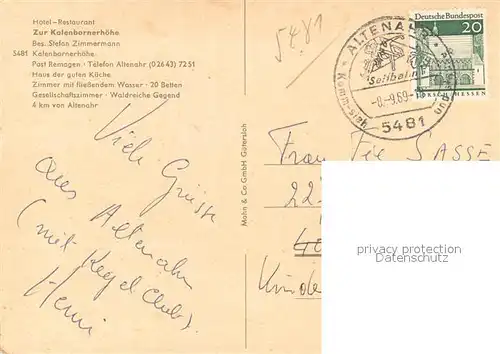 Hotel-Restaurant
Zur Kalenbornerhöhe
Bes. Stefan Zimmermann
5481 Kalenbornerhöhe
Post Remagen · Telefon Altenahr (02643) 7251
Haus der guten Küche
Zimmer mit fließendem Wasser · 20 Betten
Gesellschaftszimmer · Waldreiche Gegend
4 km von Altenahr
5481
ALTENAHR
Seilbahn
-9.69-
5481
Deutsche Bundespost
20
HESSEN
Mohn & Co GmbH Gütersloh
Viele Grüsse
aus Altenahr
(mit Kegelclub)
Henni
Frau SASSE
22
40
privacy protection
Datenschutz